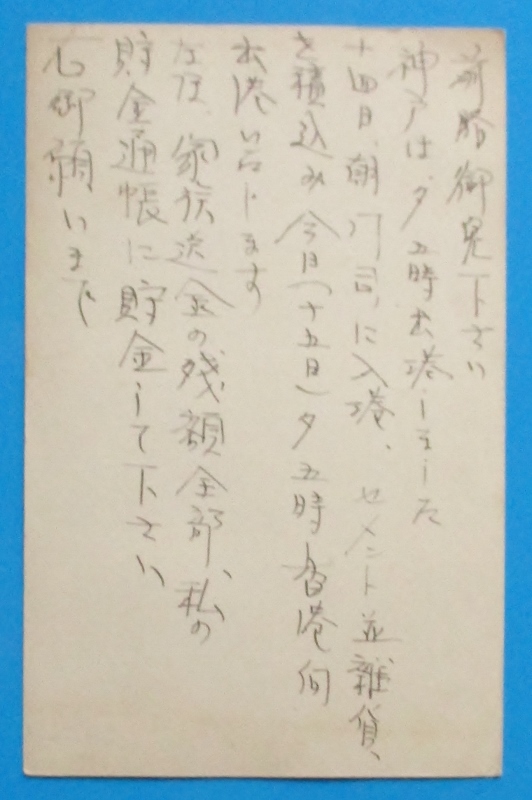 前略御免下さい
神戸は夕五時出港しました
十四日朝門司に入港、セメント並雑貨、
を積込み今日(十五日)夕五時香港向
出港いたします
なほ、家族送金の残額全部、私の
貯金通帳に貯金して下さい
御願いまで